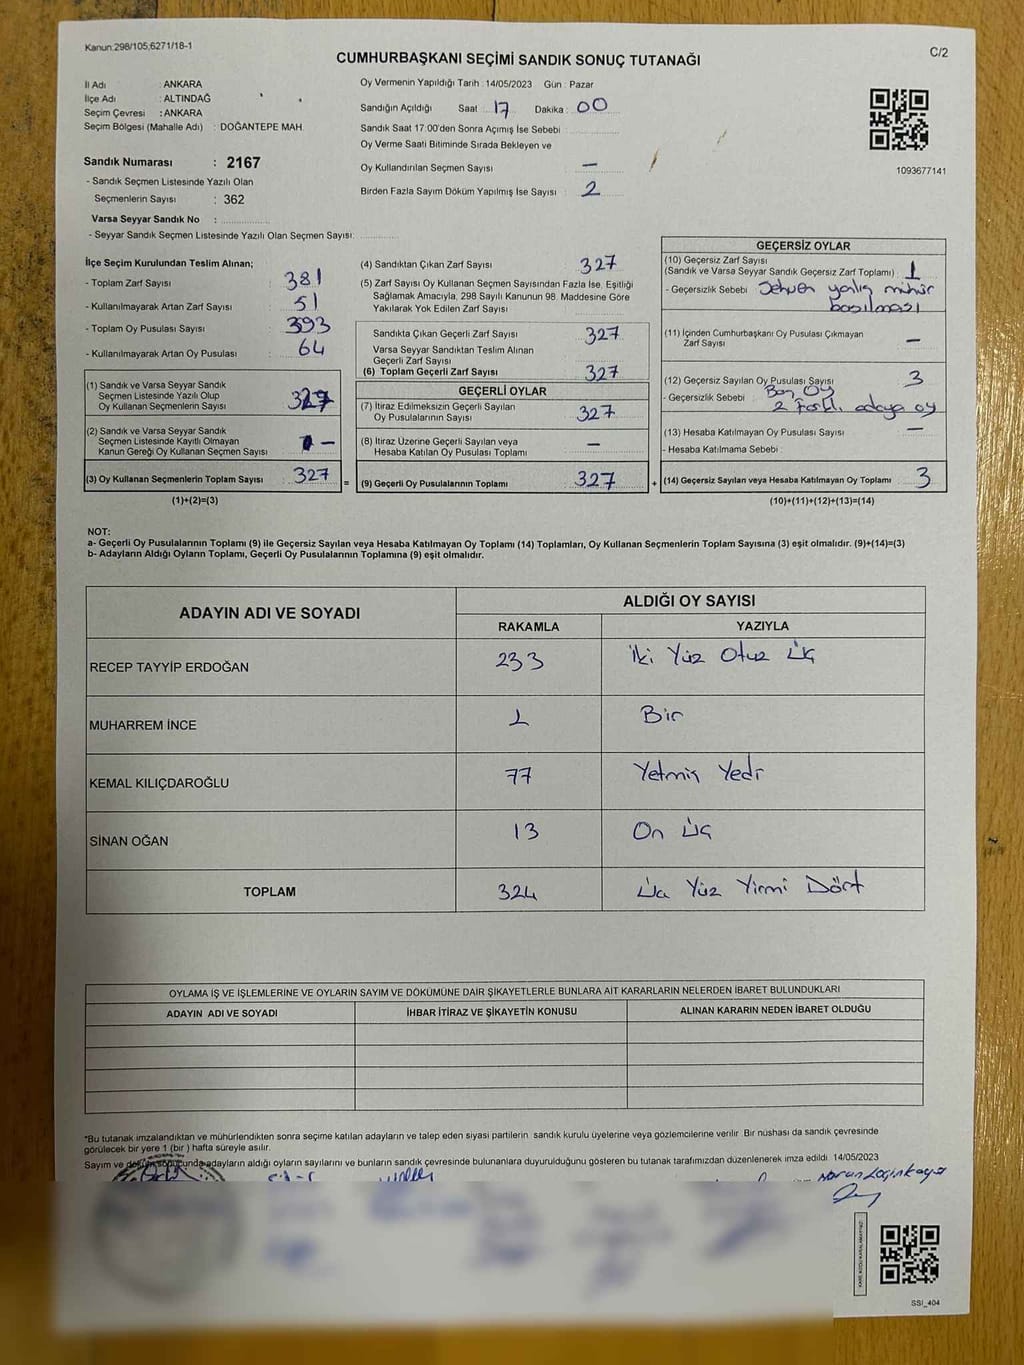 Kanun:298/105;6271/18-1
C/2
CUMHURBAŞKANI SEÇİMİ SANDIK SONUÇ TUTANAĞI
İl Adı : ANKARA
İlçe Adı : ALTINDAĞ
Seçim Çevresi : ANKARA
Seçim Bölgesi (Mahalle Adı) : DOĞANTEPE MAH.
Sandık Numarası : 2167
- Sandık Seçmen Listesinde Yazılı Olan
Seçmenlerin Sayısı : 362
Varsa Seyyar Sandık No :
- Seyyar Sandık Seçmen Listesinde Yazılı Olan Seçmen Sayısı:
Oy Vermenin Yapıldığı Tarih : 14/05/2023 Gün : Pazar
Sandığın Açıldığı Saat : 17 Dakika : 00
Sandık Saat 17:00'den Sonra Açımış İse Sebebi :
Oy Verme Saati Bitiminde Sırada Bekleyen ve
Oy Kullandırılan Seçmen Sayısı : —
Birden Fazla Sayım Döküm Yapılmış İse Sayısı : 2
1093677141
İlçe Seçim Kurulundan Teslim Alınan;
- Toplam Zarf Sayısı : 381
- Kullanılmayarak Artan Zarf Sayısı : 51
- Toplam Oy Pusulası Sayısı : 393
- Kullanılmayarak Artan Oy Pusulası : 64
(1) Sandık ve Varsa Seyyar Sandık
Seçmen Listesinde Yazılı Olup
Oy Kullanan Seçmenlerin Sayısı : 327
(2) Sandık ve Varsa Seyyar Sandık
Seçmen Listesinde Kayıtlı Olmayan
Kanun Gereği Oy Kullanan Seçmen Sayısı : —
(3) Oy Kullanan Seçmenlerin Toplam Sayısı : 327 =
(1)+(2)=(3)
(4) Sandıktan Çıkan Zarf Sayısı : 327
(5) Zarf Sayısı Oy Kullanan Seçmen Sayısından Fazla İse, Eşitliği
Sağlamak Amacıyla, 298 Sayılı Kanunun 98. Maddesine Göre
Yakılarak Yok Edilen Zarf Sayısı :
Sandıkta Çıkan Geçerli Zarf Sayısı : 327
Varsa Seyyar Sandıktan Teslim Alınan
Geçerli Zarf Sayısı :
(6) Toplam Geçerli Zarf Sayısı : 327
GEÇERLİ OYLAR
(7) İtiraz Edilmeksizin Geçerli Sayılan
Oy Pusulalarının Sayısı : 327
(8) İtiraz Üzerine Geçerli Sayılan veya
Hesaba Katılan Oy Pusulası Toplamı : —
(9) Geçerli Oy Pusulalarının Toplamı : 327 +
GEÇERSİZ OYLAR
(10) Geçersiz Zarf Sayısı
(Sandık ve Varsa Seyyar Sandık Geçersiz Zarf Toplamı) : 1
- Geçersizlik Sebebi : Sehven yalış mühür
basılması
(11) İçinden Cumhurbaşkanı Oy Pusulası Çıkmayan
Zarf Sayısı : —
(12) Geçersiz Sayılan Oy Pusulası Sayısı : 3
- Geçersizlik Sebebi : Boş Oy
2 Farklı adaya oy
(13) Hesaba Katılmayan Oy Pusulası Sayısı : —
- Hesaba Katılmama Sebebi :
(14) Geçersiz Sayılan veya Hesaba Katılmayan Oy Toplamı : 3
(10)+(11)+(12)+(13)=(14)
NOT:
a- Geçerli Oy Pusulalarının Toplamı (9) ile Geçersiz Sayılan veya Hesaba Katılmayan Oy Toplamı (14) Toplamları, Oy Kullanan Seçmenlerin Toplam Sayısına (3) eşit olmalıdır. (9)+(14)=(3)
b- Adayların Aldığı Oyların Toplamı, Geçerli Oy Pusulalarının Toplamına (9) eşit olmalıdır.
ADAYIN ADI VE SOYADI
ALDIĞI OY SAYISI
RAKAMLA YAZIYLA
RECEP TAYYİP ERDOĞAN 233 İki Yüz Otuz Üç
MUHARREM İNCE 1 Bir
KEMAL KILIÇDAROĞLU 77 Yetmiş Yedi
SİNAN OĞAN 13 On Üç
TOPLAM 324 Üç Yüz Yirmi Dört
OYLAMA İŞ VE İŞLEMLERİNE VE OYLARIN SAYIM VE DÖKÜMÜNE DAİR ŞİKAYETLERLE BUNLARA AİT KARARLARIN NELERDEN İBARET BULUNDUKLARI
ADAYIN ADI VE SOYADI İHBAR İTİRAZ VE ŞİKAYETİN KONUSU ALINAN KARARIN NEDEN İBARET OLDUĞU
*Bu tutanak imzalandıktan ve mühürlendikten sonra seçime katılan adayların ve talep eden siyasi partilerin sandık kurulu üyelerine veya gözlemcilerine verilir. Bir nüshası da sandık çevresinde
görülecek bir yere 1 (bir) hafta süreyle asılır.
Sayım ve döküm sonucunda adayların aldığı oyların sayılarını ve bunların sandık çevresinde bulunanlara duyurulduğunu gösteren bu tutanak tarafımızdan düzenlenerek imza edildi. 14/05/2023
SSI_404